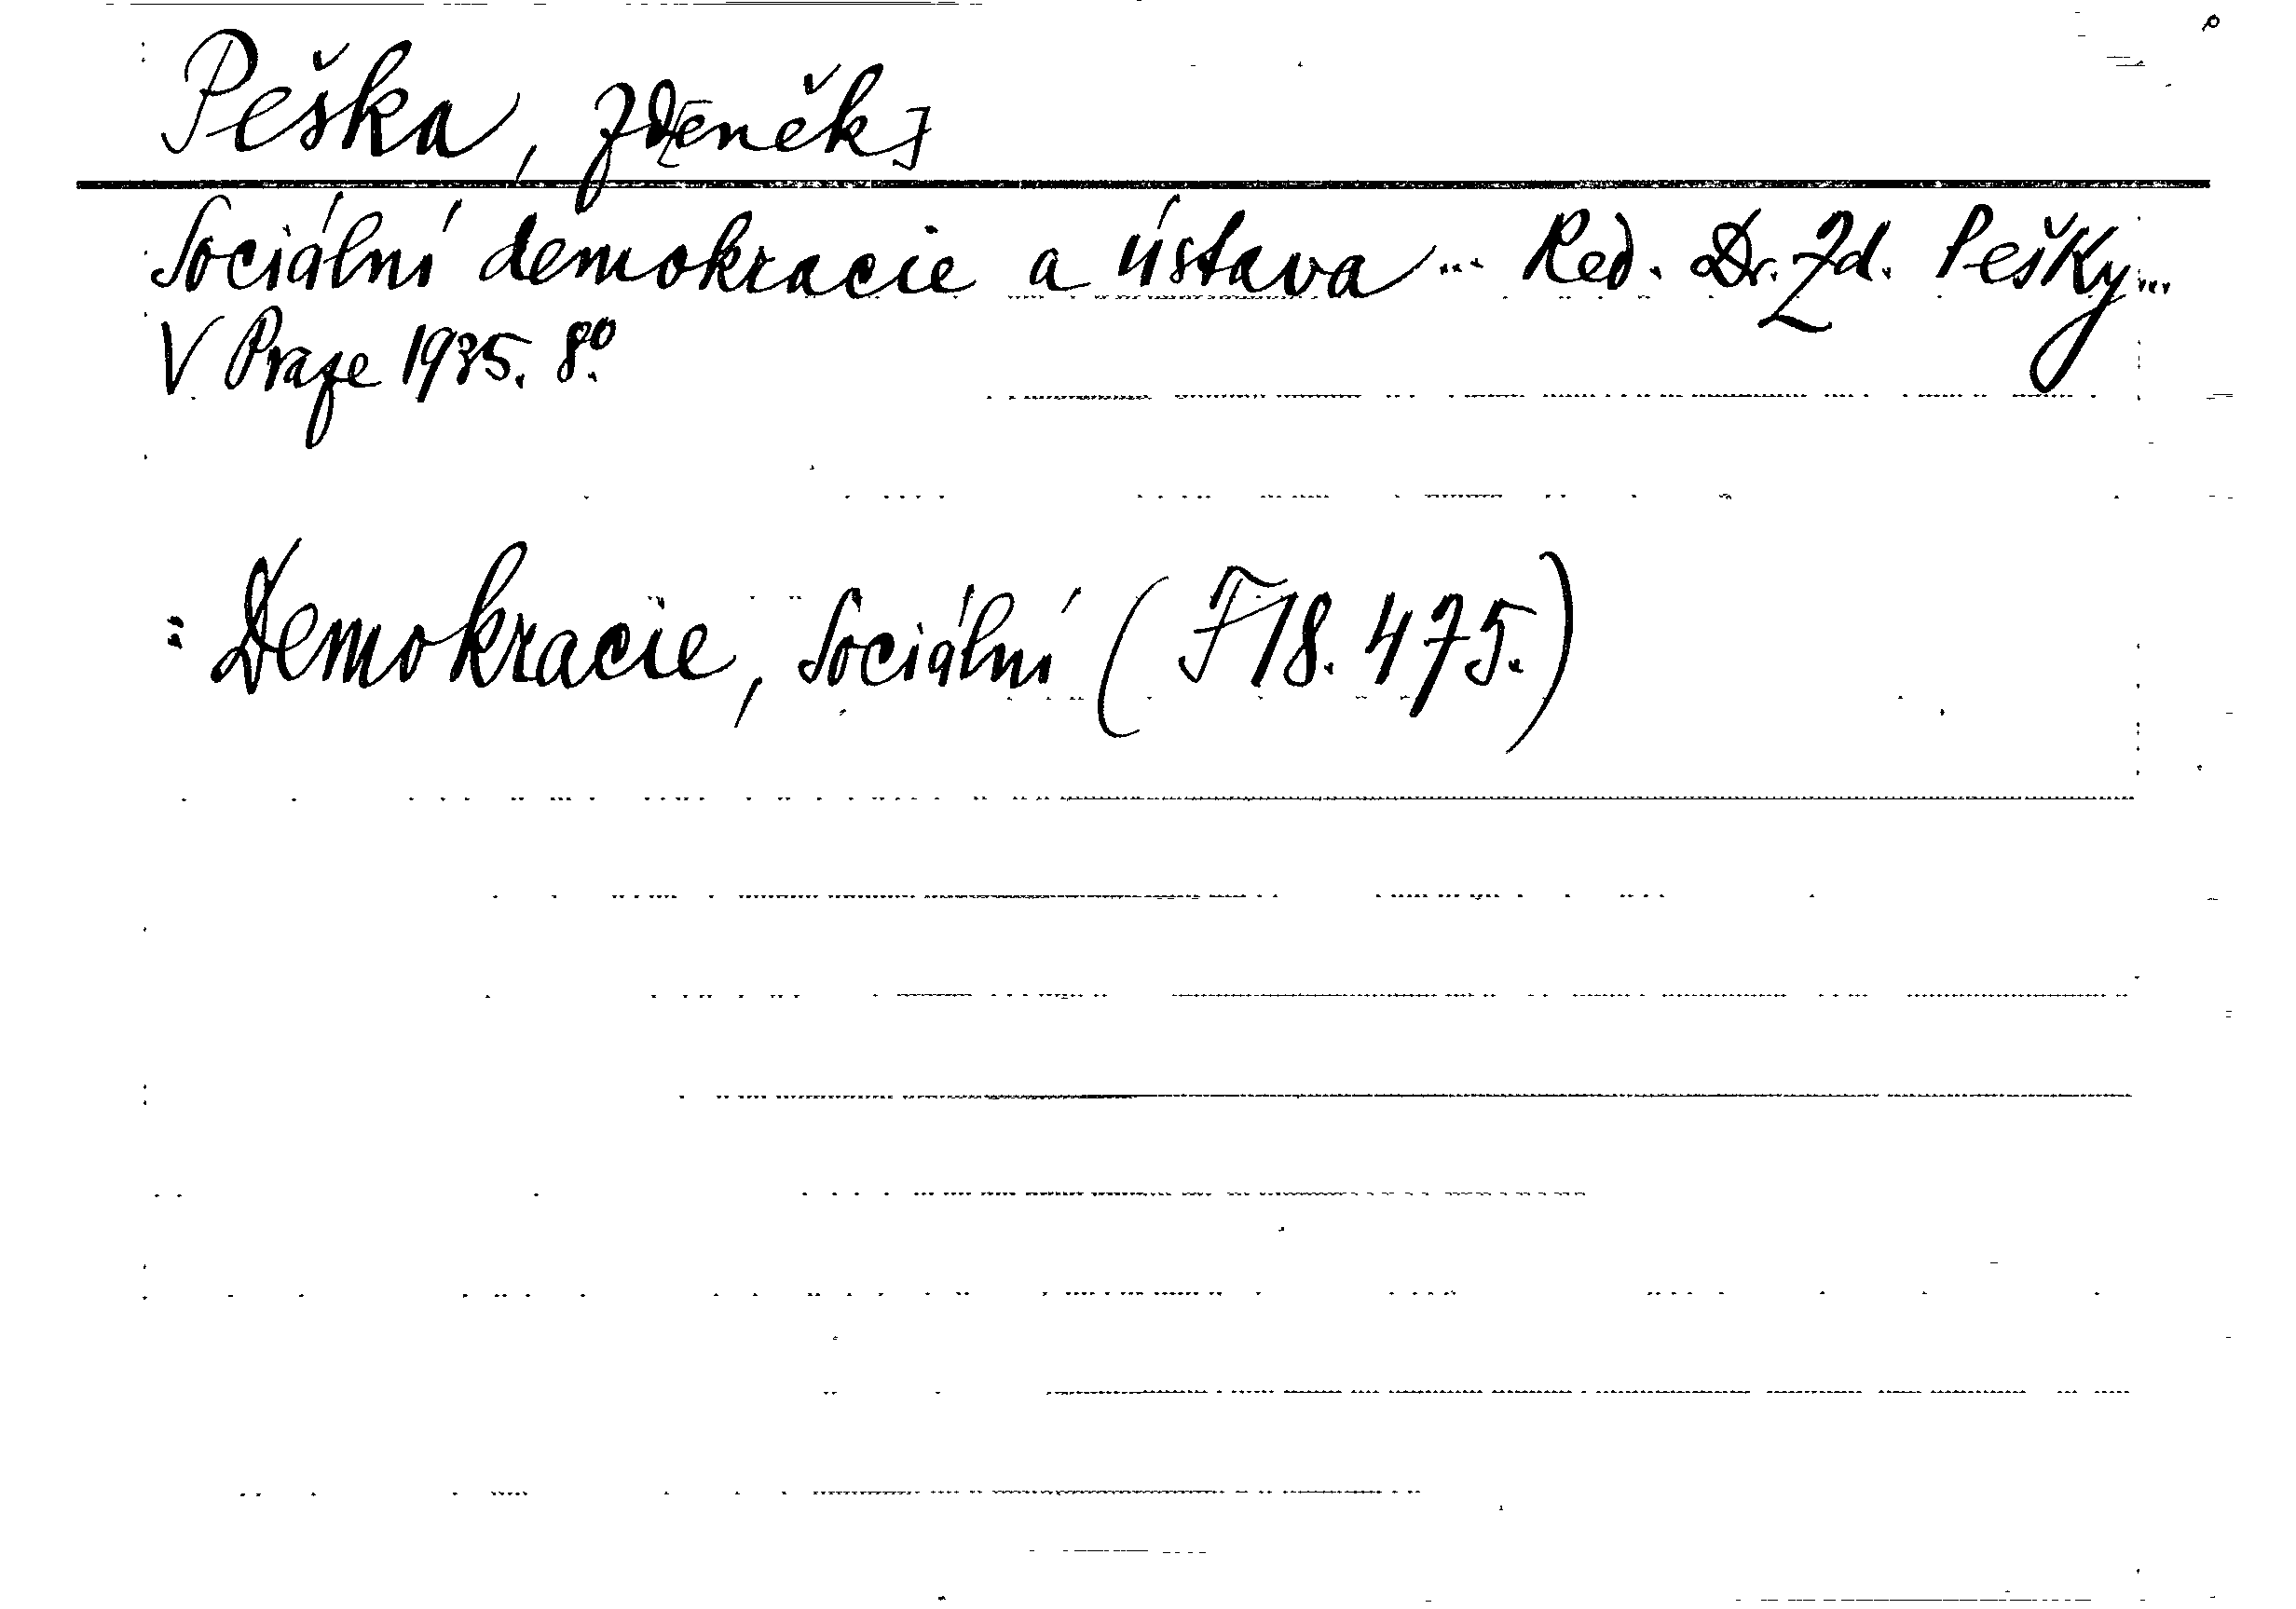 Peška, Zd[eněk]
Sociální demokracie a ústava ... Red. Dr. Zd. Pešky...
V Praze 1935. 8º.
: Demokracie, sociální (F 18.475.)